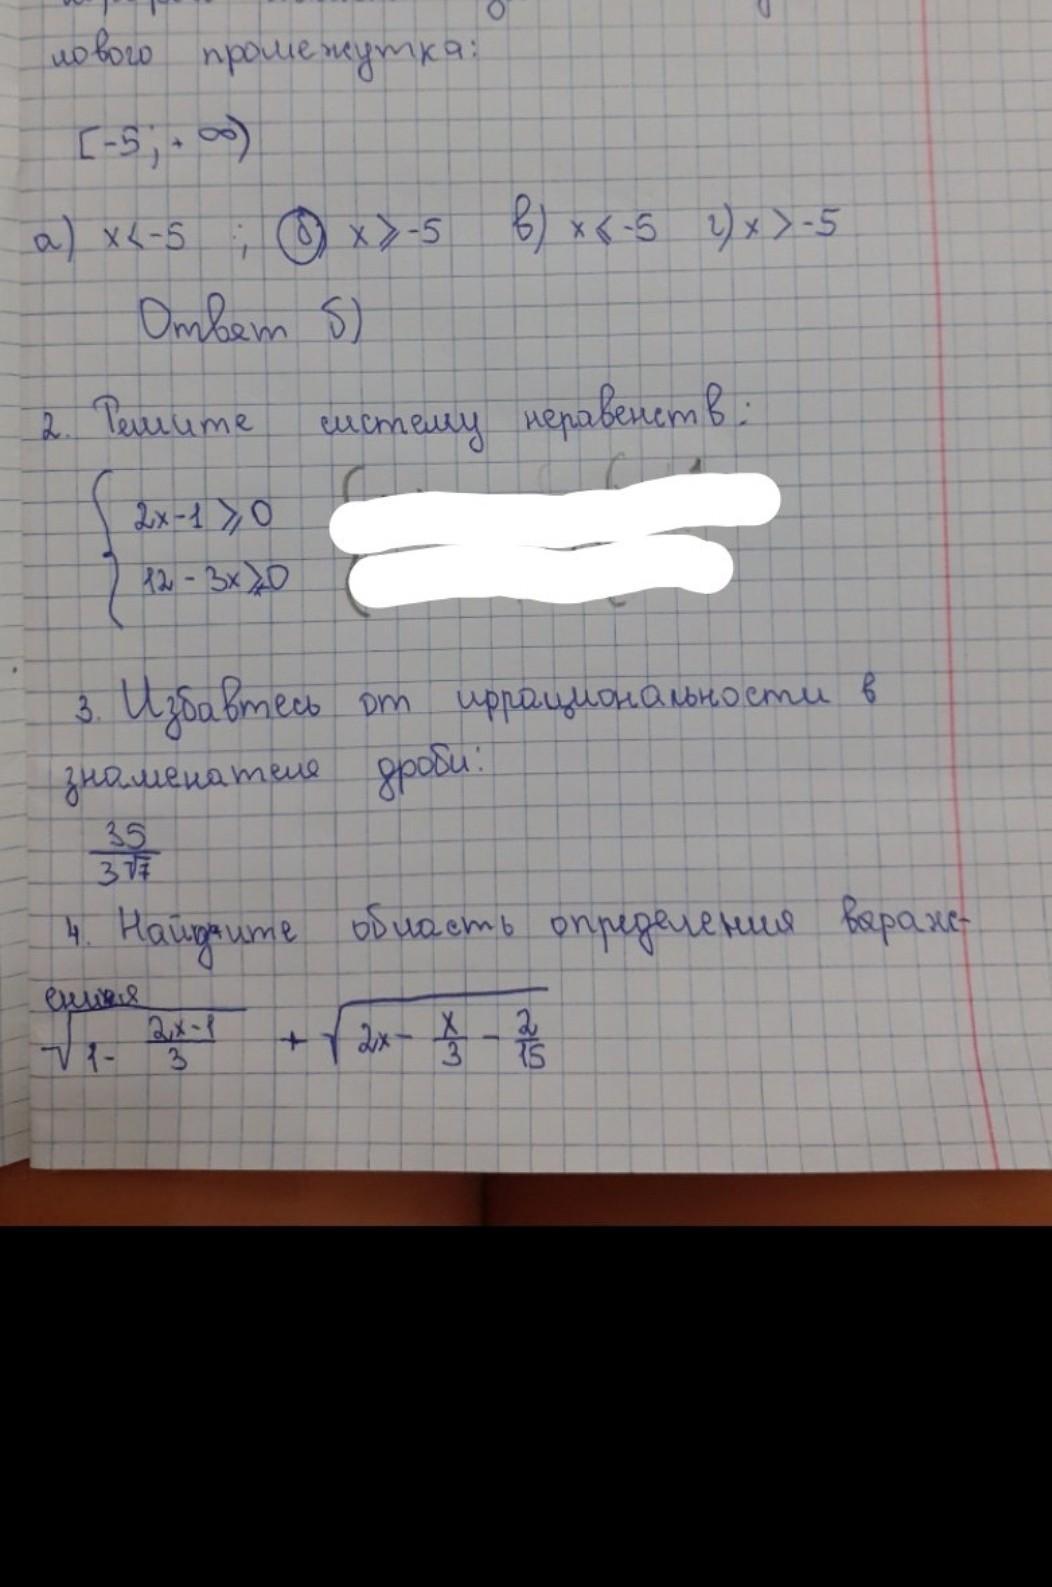 лового промежутка:
[-5; +∞)
а) x<-5 ; б) x⩾-5 в) x⩽-5 г) x>-5
Ответ б)
2. Решите систему неравенств:
{ 2x-1⩾0
12-3x⩾0
3. Избавтесь от иррациональности в
знаменателе дроби:
35
3√7
4. Найдите область определения выраж-
ения
√(1- (2x-1)/3) + √(2x - x/3 - 2/15)